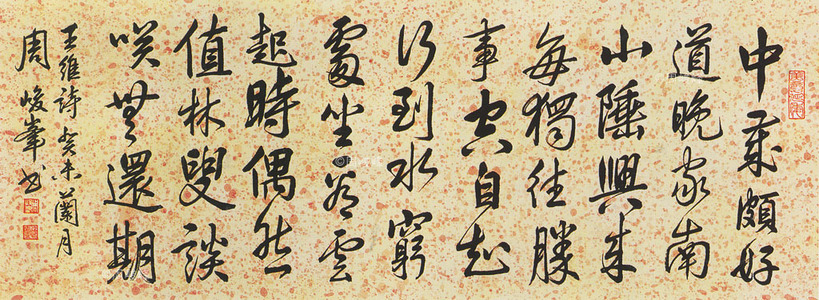 中歲頗好
道晚家南
山陲興來
每獨往勝
事空自知
行到水窮
處坐看雲
起時偶然
值林叟談
咲無還期
王維詩癸未蘭月
周峻峯书